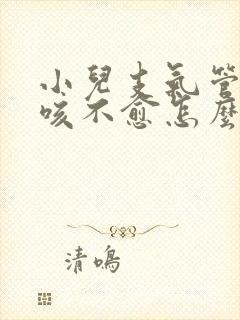 小兒支氣管
咳不愈怎麼
清鳴